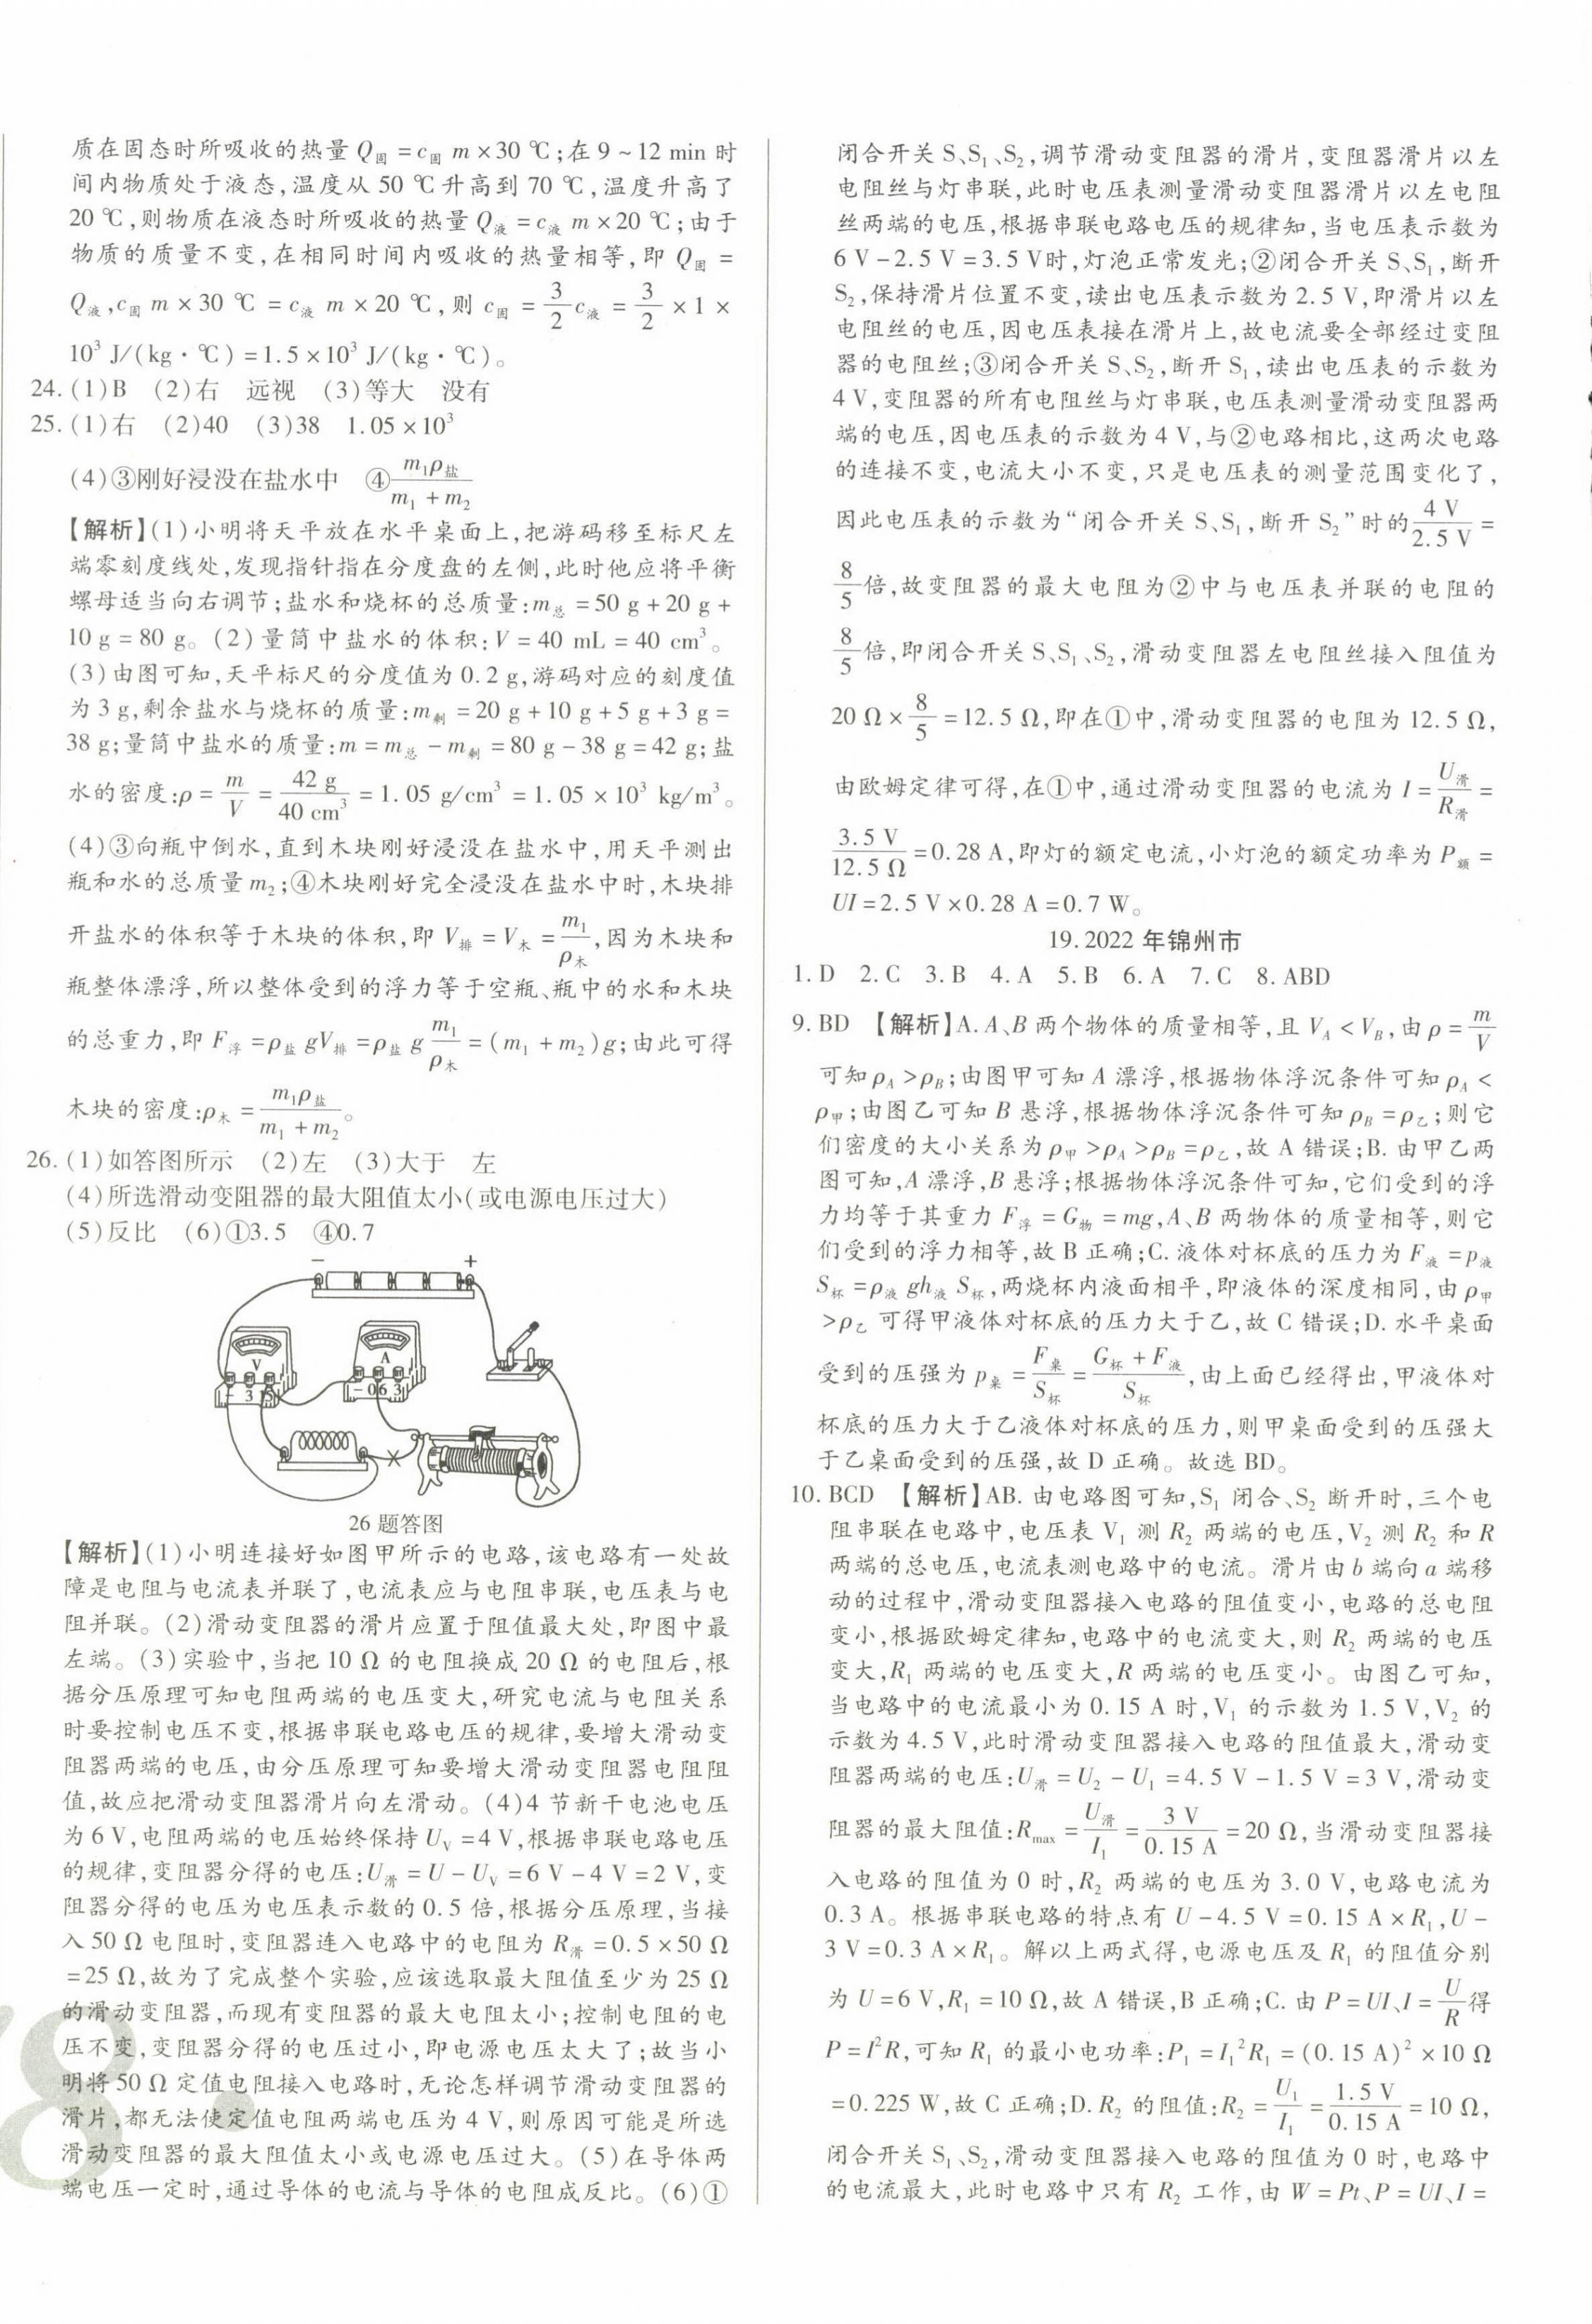 质在固态时所吸收的热量 Q固 = c固 m×30 ℃;在 9 ~ 12 min 时
间内物质处于液态,温度从 50 ℃升高到 70 ℃,温度升高了
20 ℃,则物质在液态时所吸收的热量 Q液 = c液 m×20 ℃;由于
物质的质量不变,在相同时间内吸收的热量相等,即 Q固 =
Q液,c固 m×30 ℃ = c液 m×20 ℃,则 c固 = 3/2 c液 = 3/2 ×1×
10³ J/(kg·℃) = 1.5×10³ J/(kg·℃)。
24. (1)B (2)右 远视 (3)等大 没有
25. (1)右 (2)40 (3)38 1.05×10³
(4)③刚好浸没在盐水中 ④m₁ρ盐/(m₁+m₂)
【解析】(1)小明将天平放在水平桌面上,把游码移至标尺左
端零刻度线处,发现指针指在分度盘的左侧,此时他应将平衡
螺母适当向右调节;盐水和烧杯的总质量:m总 = 50 g + 20 g +
10 g = 80 g。(2)量筒中盐水的体积:V = 40 mL = 40 cm³。
(3)由图可知,天平标尺的分度值为 0.2 g,游码对应的刻度值
为 3 g,剩余盐水与烧杯的质量:m剩 = 20 g + 10 g + 5 g + 3 g =
38 g;量筒中盐水的质量:m = m总 − m剩 = 80 g − 38 g = 42 g;盐
水的密度:ρ = m/V = 42 g/40 cm³ = 1.05 g/cm³ = 1.05×10³ kg/m³。
(4)③向瓶中倒水,直到木块刚好浸没在盐水中,用天平测出
瓶和水的总质量 m₂;④木块刚好完全浸没在盐水中时,木块排
开盐水的体积等于木块的体积,即 V排 = V木 = m₁/ρ木,因为木块和
瓶整体漂浮,所以整体受到的浮力等于空瓶、瓶中的水和木块
的总重力,即 F浮 = ρ盐 gV排 = ρ盐 g m₁/ρ木 = (m₁ + m₂)g;由此可得
木块的密度:ρ木 = m₁ρ盐/(m₁+m₂)。
26. (1)如答图所示 (2)左 (3)大于 左
(4)所选滑动变阻器的最大阻值太小(或电源电压过大)
(5)反比 (6)①3.5 ④0.7
− +
V
A
− 3 15
−0.6 3
26 题答图
【解析】(1)小明连接好如图甲所示的电路,该电路有一处故
障是电阻与电流表并联了,电流表应与电阻串联,电压表与电
阻并联。(2)滑动变阻器的滑片应置于阻值最大处,即图中最
左端。(3)实验中,当把 10 Ω 的电阻换成 20 Ω 的电阻后,根
据分压原理可知电阻两端的电压变大,研究电流与电阻关系
时要控制电压不变,根据串联电路电压的规律,要增大滑动变
阻器两端的电压,由分压原理可知要增大滑动变阻器电阻阻
值,故应把滑动变阻器滑片向左滑动。(4)4 节新干电池电压
为 6 V,电阻两端的电压始终保持 UV = 4 V,根据串联电路电压
的规律,变阻器分得的电压:U滑 = U − UV = 6 V − 4 V = 2 V,变
阻器分得的电压为电压表示数的 0.5 倍,根据分压原理,当接
入 50 Ω 电阻时,变阻器连入电路中的电阻为 R滑 = 0.5×50 Ω
= 25 Ω,故为了完成整个实验,应该选取最大阻值至少为 25 Ω
的滑动变阻器,而现有变阻器的最大电阻太小;控制电阻的电
压不变,变阻器分得的电压过小,即电源电压太大了;故当小
明将 50 Ω 定值电阻接入电路时,无论怎样调节滑动变阻器的
滑片,都无法使定值电阻两端电压为 4 V,则原因可能是所选
滑动变阻器的最大阻值太小或电源电压过大。(5)在导体两
端电压一定时,通过导体的电流与导体的电阻成反比。(6)①
闭合开关 S、S₁、S₂,调节滑动变阻器的滑片,变阻器滑片以左
电阻丝与灯串联,此时电压表测量滑动变阻器滑片以左电阻
丝两端的电压,根据串联电路电压的规律知,当电压表示数为
6 V − 2.5 V = 3.5 V时,灯泡正常发光;②闭合开关 S、S₁,断开
S₂,保持滑片位置不变,读出电压表示数为 2.5 V,即滑片以左
电阻丝的电压,因电压表接在滑片上,故电流要全部经过变阻
器的电阻丝;③闭合开关 S、S₂,断开 S₁,读出电压表的示数为
4 V,变阻器的所有电阻丝与灯串联,电压表测量滑动变阻器两
端的电压,因电压表的示数为 4 V,与②电路相比,这两次电路
的连接不变,电流大小不变,只是电压表的测量范围变化了,
因此电压表的示数为“闭合开关 S、S₁,断开 S₂”时的 4 V/2.5 V =
8/5 倍,故变阻器的最大电阻为②中与电压表并联的电阻的
8/5 倍,即闭合开关 S、S₁、S₂,滑动变阻器左电阻丝接入阻值为
20 Ω × 8/5 = 12.5 Ω,即在①中,滑动变阻器的电阻为 12.5 Ω,
由欧姆定律可得,在①中,通过滑动变阻器的电流为 I = U滑/R滑 =
3.5 V/12.5 Ω = 0.28 A,即灯的额定电流,小灯泡的额定功率为 P额 =
UI = 2.5 V×0.28 A = 0.7 W。
19. 2022 年锦州市
1. D 2. C 3. B 4. A 5. B 6. A 7. C 8. ABD
9. BD 【解析】A. A、B 两个物体的质量相等,且 VA < VB,由 ρ = m/V
可知 ρA > ρB;由图甲可知 A 漂浮,根据物体浮沉条件可知 ρA <
ρ甲;由图乙可知 B 悬浮,根据物体浮沉条件可知 ρB = ρ乙;则它
们密度的大小关系为 ρ甲 > ρA > ρB = ρ乙,故 A 错误;B. 由甲乙两
图可知,A 漂浮,B 悬浮;根据物体浮沉条件可知,它们受到的浮
力均等于其重力 F浮 = G物 = mg,A、B 两物体的质量相等,则它
们受到的浮力相等,故 B 正确;C. 液体对杯底的压力为 F液 = p液
S杯 = ρ液 gh液 S杯,两烧杯内液面相平,即液体的深度相同,由 ρ甲
> ρ乙 可得甲液体对杯底的压力大于乙,故 C 错误;D. 水平桌面
受到的压强为 p桌 = F桌/S杯 = (G杯 + F液)/S杯,由上面已经得出,甲液体对
杯底的压力大于乙液体对杯底的压力,则甲桌面受到的压强大
于乙桌面受到的压强,故 D 正确。故选 BD。
10. BCD 【解析】AB. 由电路图可知,S₁ 闭合、S₂ 断开时,三个电
阻串联在电路中,电压表 V₁ 测 R₂ 两端的电压,V₂ 测 R₂ 和 R
两端的总电压,电流表测电路中的电流。滑片由 b 端向 a 端移
动的过程中,滑动变阻器接入电路的阻值变小,电路的总电阻
变小,根据欧姆定律知,电路中的电流变大,则 R₂ 两端的电压
变大,R₁ 两端的电压变大,R 两端的电压变小。由图乙可知,
当电路中的电流最小为 0.15 A 时,V₁ 的示数为 1.5 V,V₂ 的
示数为 4.5 V,此时滑动变阻器接入电路的阻值最大,滑动变
阻器两端的电压:U滑 = U₂ − U₁ = 4.5 V − 1.5 V = 3 V,滑动变
阻器的最大阻值:Rmax = U滑/I₁ = 3 V/0.15 A = 20 Ω,当滑动变阻器接
入电路的阻值为 0 时,R₂ 两端的电压为 3.0 V,电路电流为
0.3 A。根据串联电路的特点有 U − 4.5 V = 0.15 A×R₁,U −
3 V = 0.3 A×R₁。解以上两式得,电源电压及 R₁ 的阻值分别
为 U = 6 V,R₁ = 10 Ω,故 A 错误,B 正确;C. 由 P = UI、I = U/R 得
P = I²R,可知 R₁ 的最小电功率:P₁ = I₁²R₁ = (0.15 A)²×10 Ω
= 0.225 W,故 C 正确;D. R₂ 的阻值:R₂ = U₁/I₁ = 1.5 V/0.15 A = 10 Ω,
闭合开关 S₁、S₂,滑动变阻器接入电路的阻值为 0 时,电路中
的电流最大,此时电路中只有 R₂ 工作,由 W = Pt、P = UI、I =